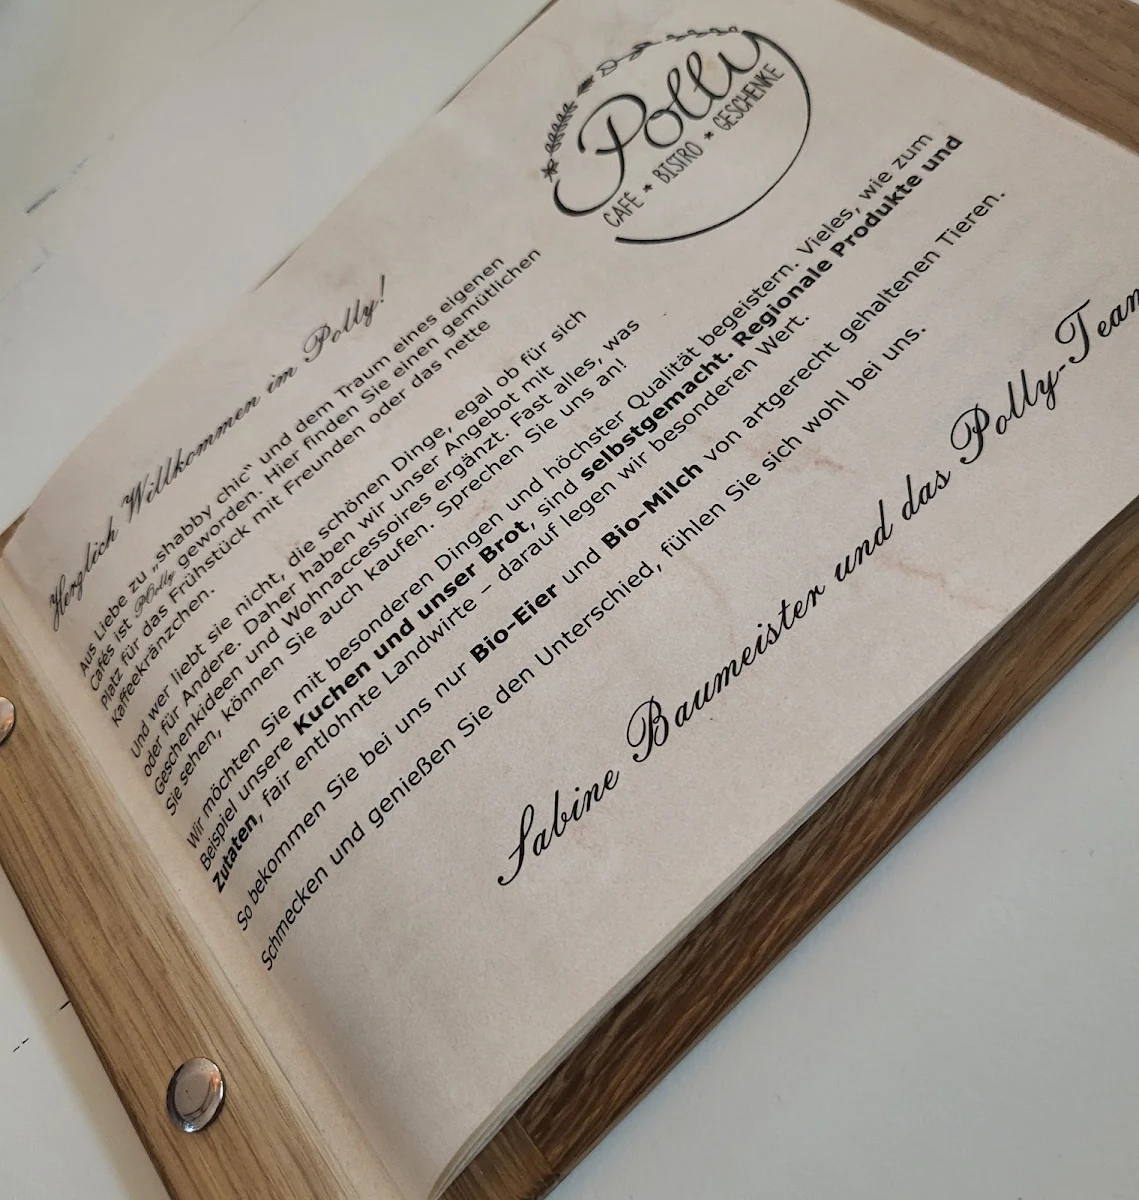 Polly
CAFÉ * BISTRO * GESCHENKE
Herzlich Willkommen im Polly!
Aus Liebe zu „shabby chic“ und dem Traum eines eigenen
Cafés ist Polly geworden. Hier finden Sie einen gemütlichen
Platz für das Frühstück mit Freunden oder das nette
Kaffeekränzchen.
Und wer liebt sie nicht, die schönen Dinge, egal ob für sich
oder für Andere. Daher haben wir unser Angebot mit
Geschenkideen und Wohnaccessoires ergänzt. Fast alles, was
Sie sehen, können Sie auch kaufen. Sprechen Sie uns an!
Wir möchten Sie mit besonderen Dingen und höchster Qualität begeistern. Vieles, wie zum
Beispiel unsere Kuchen und unser Brot, sind selbstgemacht. Regionale Produkte und
Zutaten, fair entlohnte Landwirte – darauf legen wir besonderen Wert.
So bekommen Sie bei uns nur Bio-Eier und Bio-Milch von artgerecht gehaltenen Tieren.
Schmecken und genießen Sie den Unterschied, fühlen Sie sich wohl bei uns.
Sabine Baumeister und das Polly-Team